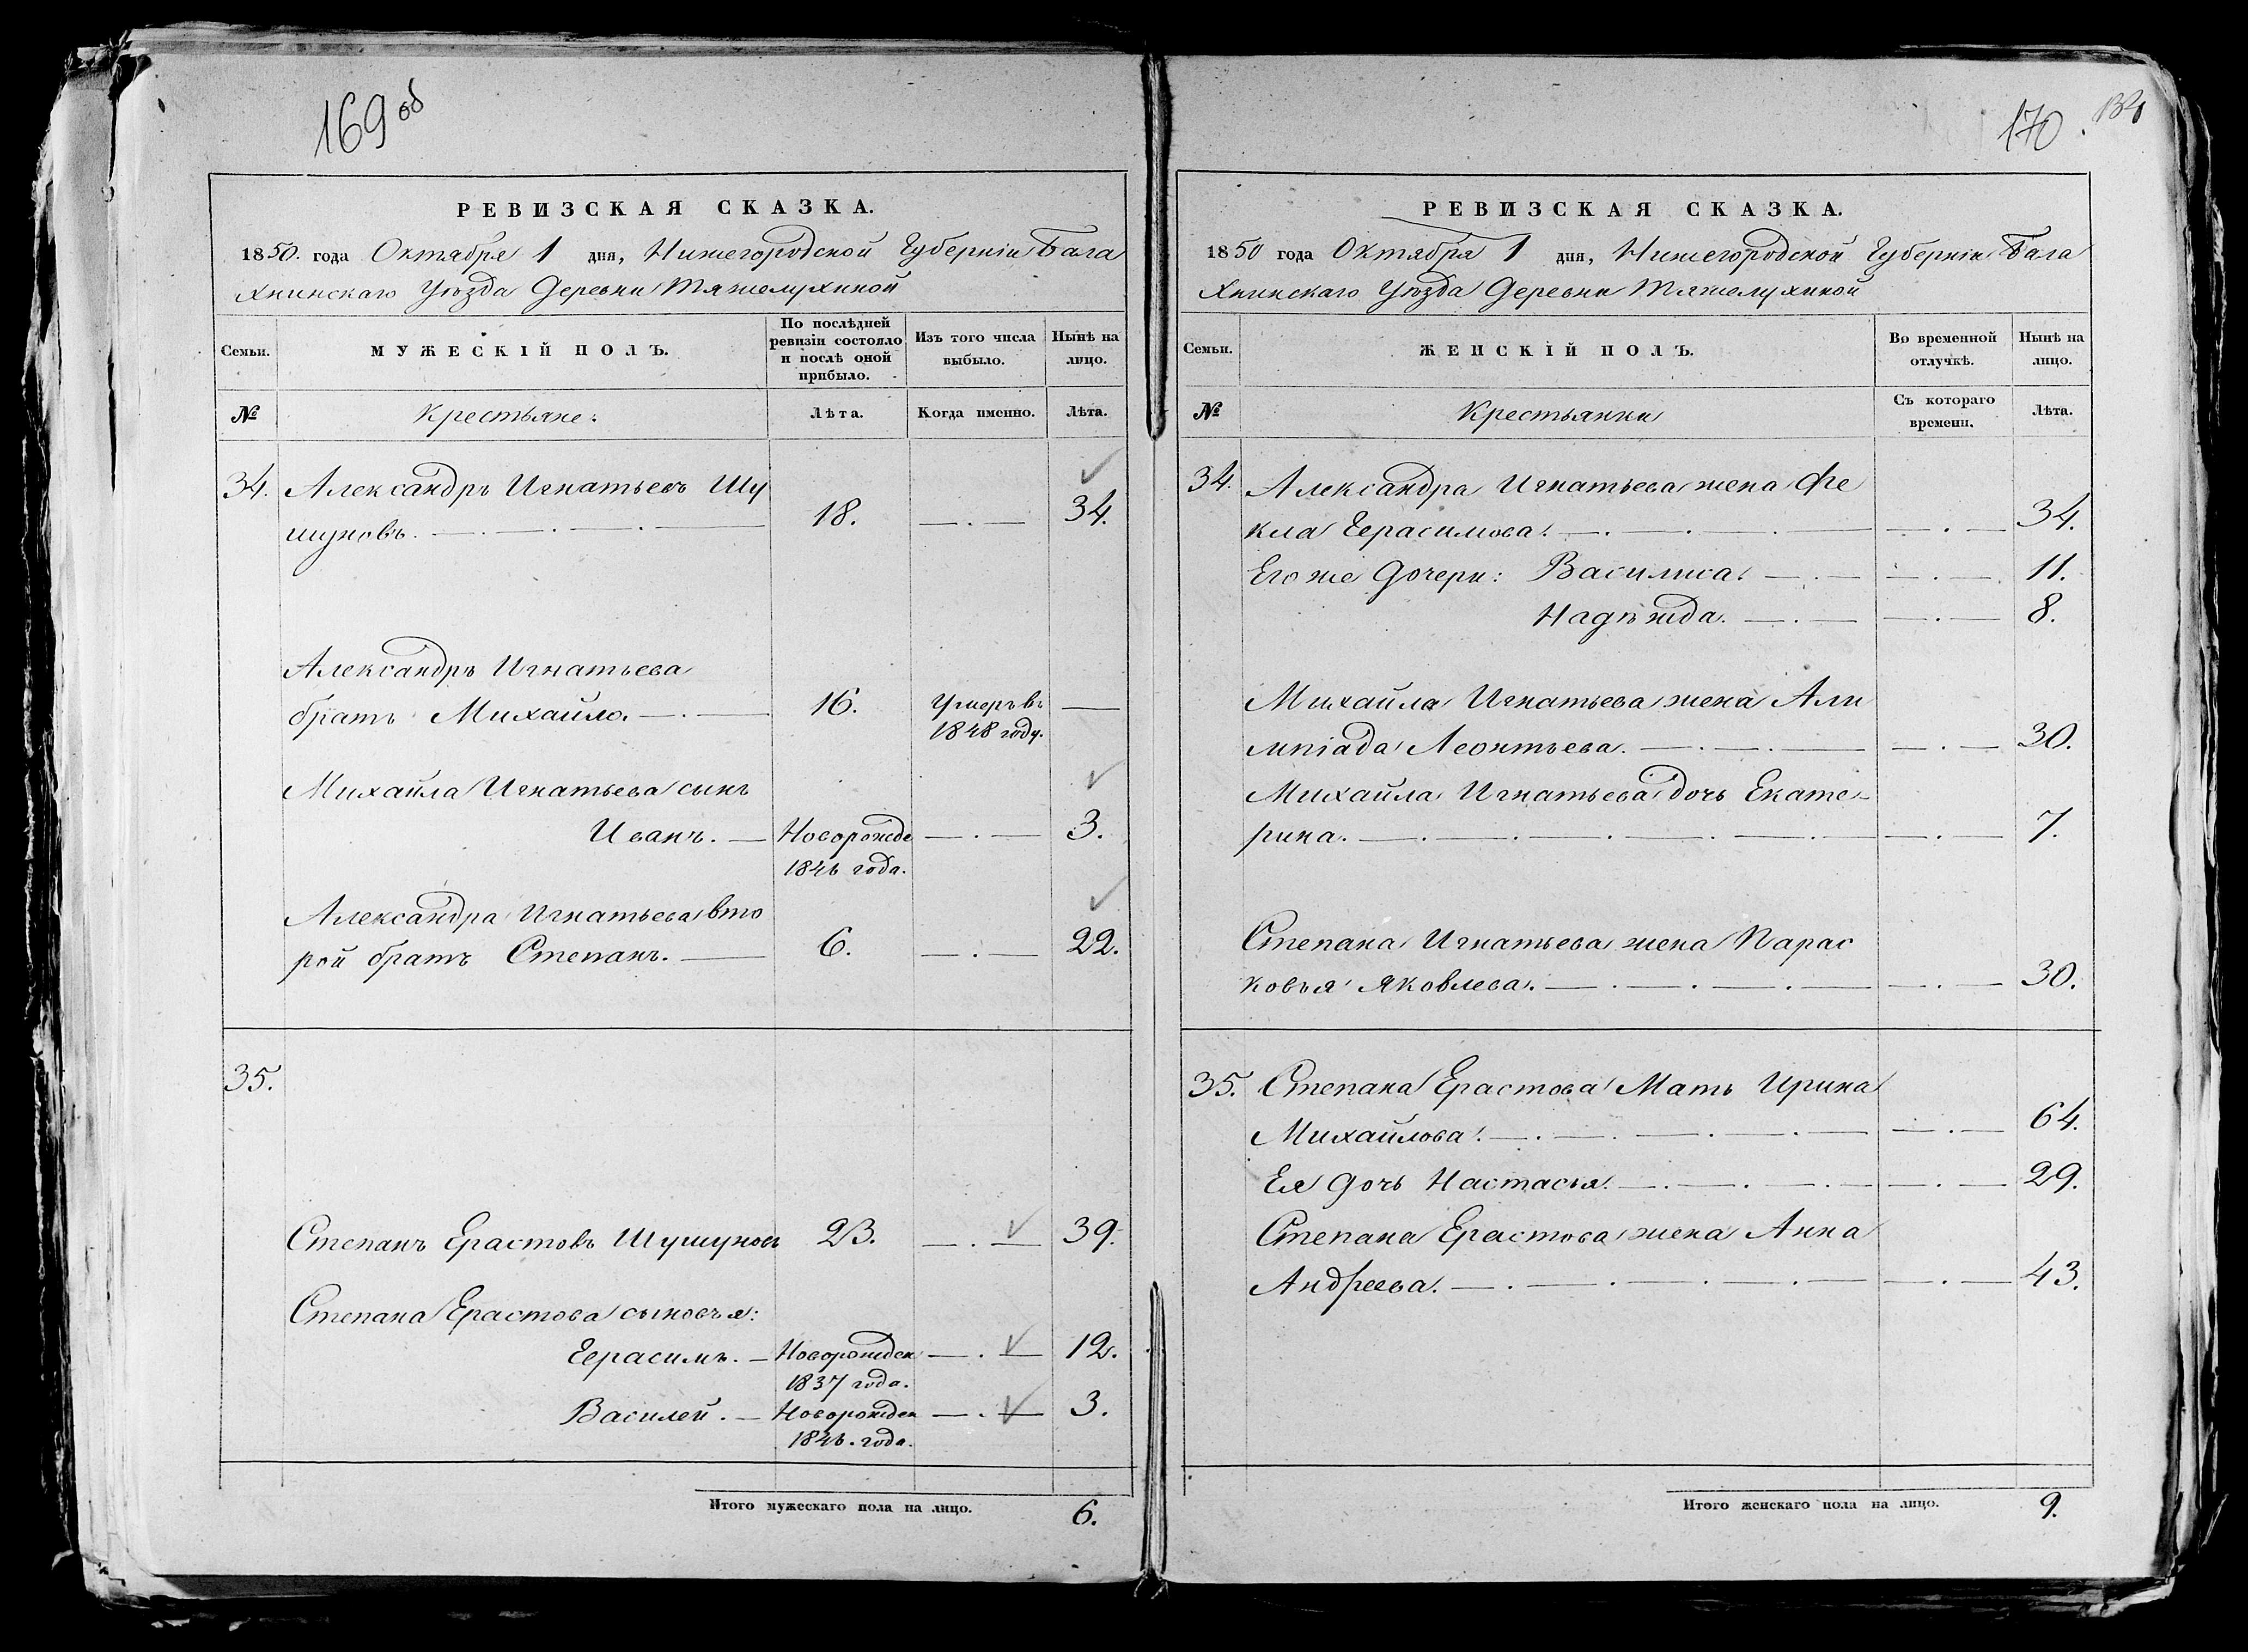 169 об
РЕВИЗСКАЯ СКАЗКА.
1850. года Октября 1 дня, Нижегородской Губерніи Бала
хнинскаго Уѣзда Деревни Тяжелухиной
Семьи.
МУЖЕСКІЙ ПОЛЪ.
По послѣдней ревизіи состояло и послѣ оной прибыло.
Изъ того числа выбыло.
Нынѣ на лицо.
№
Крестьяне:
Лѣта.
Когда именно.
Лѣта.
34. Александръ Игнатьевъ Шу
шуновъ. 18. 34.
Александръ Игнатьева
братъ Михайло. 16. Умеръ въ
1848 году.
Михайла Игнатьева сынъ
Иванъ. Новорожде 3.
1846 года.
Александра Игнатьева вто
рой братъ Степанъ. 6. 22.
35.
Степанъ Ерастовъ Шушуновъ 23. 39.
Степана Ерастова сыновья:
Герасимъ. Новорожден 12.
1837 года.
Василей. Новорожден 3.
1846. года.
Итого мужескаго пола на лицо. 6.
170.
РЕВИЗСКАЯ СКАЗКА.
1850 года Октября 1 дня, Нижегородской Губерніи Бала
хнинскаго Уѣзда Деревни Тяжелухиной
Семьи.
ЖЕНСКІЙ ПОЛЪ.
Во временной отлучкѣ.
Нынѣ на лицо.
№
Крестьянки
Съ котораго времени.
Лѣта.
34. Александра Игнатьева жена Фе
кла Герасимова. 34.
Его же Дочери: Василиса. 11.
Надѣжда. 8.
Михайла Игнатьева жена Али
мпіада Леонтьева. 30.
Михайла Игнатьева дочь Екате-
рина. 7.
Степана Игнатьева жена Парас
ковья Яковлева. 30.
35. Степана Ерастова Мать Ирина
Михайлова. 64.
Ея Дочь Настасья. 29.
Степана Ерастова жена Анна
Андреева. 43.
Итого женскаго пола на лицо. 9.